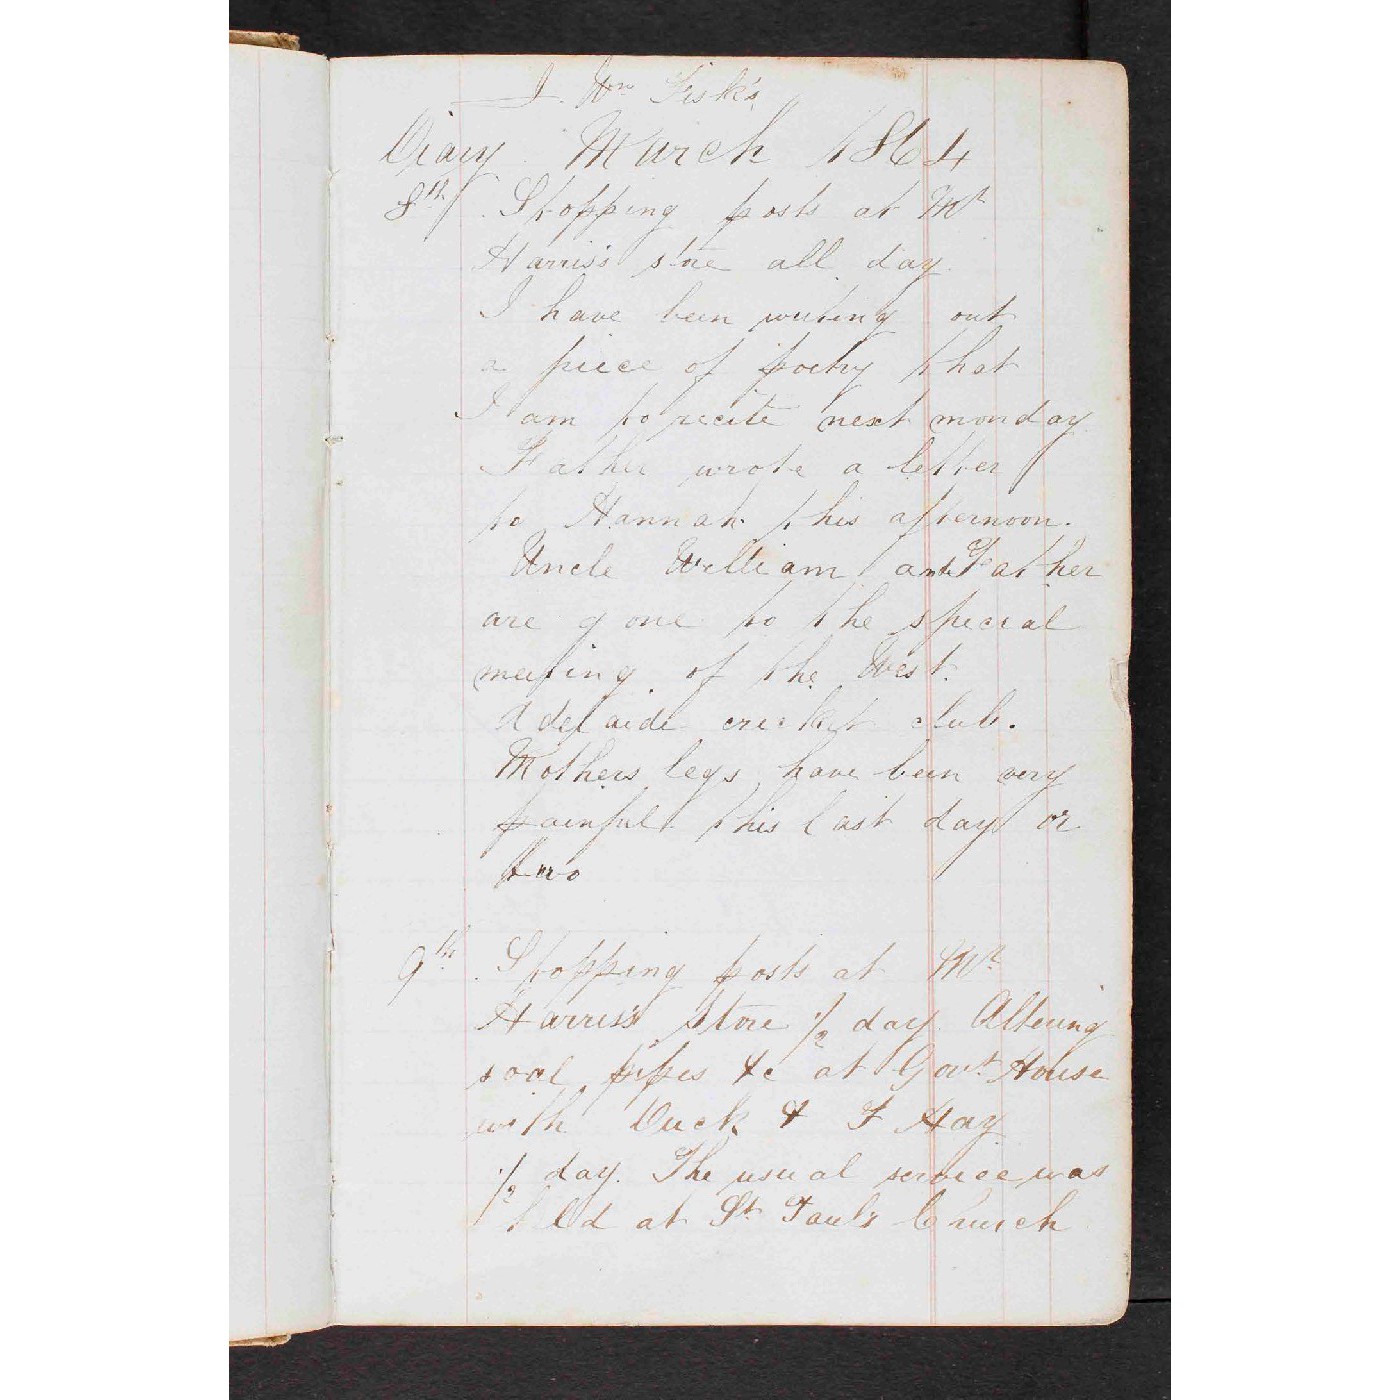 J. Wm Fisk's
Diary March 1864
8th Stopping posts at Mr
Harris's store all day.
I have been writing out
a piece of poetry that
I am to recite next monday.
Father wrote a letter
to Hannah this afternoon.
Uncle William and Father
are gone to the special
meeting of the West.
Adelaide cricket club.
Mothers legs have been very
painful this last day or
two
9th. Stopping posts at Mr
Harris's store 1/2 day. Altering
soal pipes &c at Govt House
with Duck & F Hay
1/2 day. The usual service was
held at St. Paul's Church